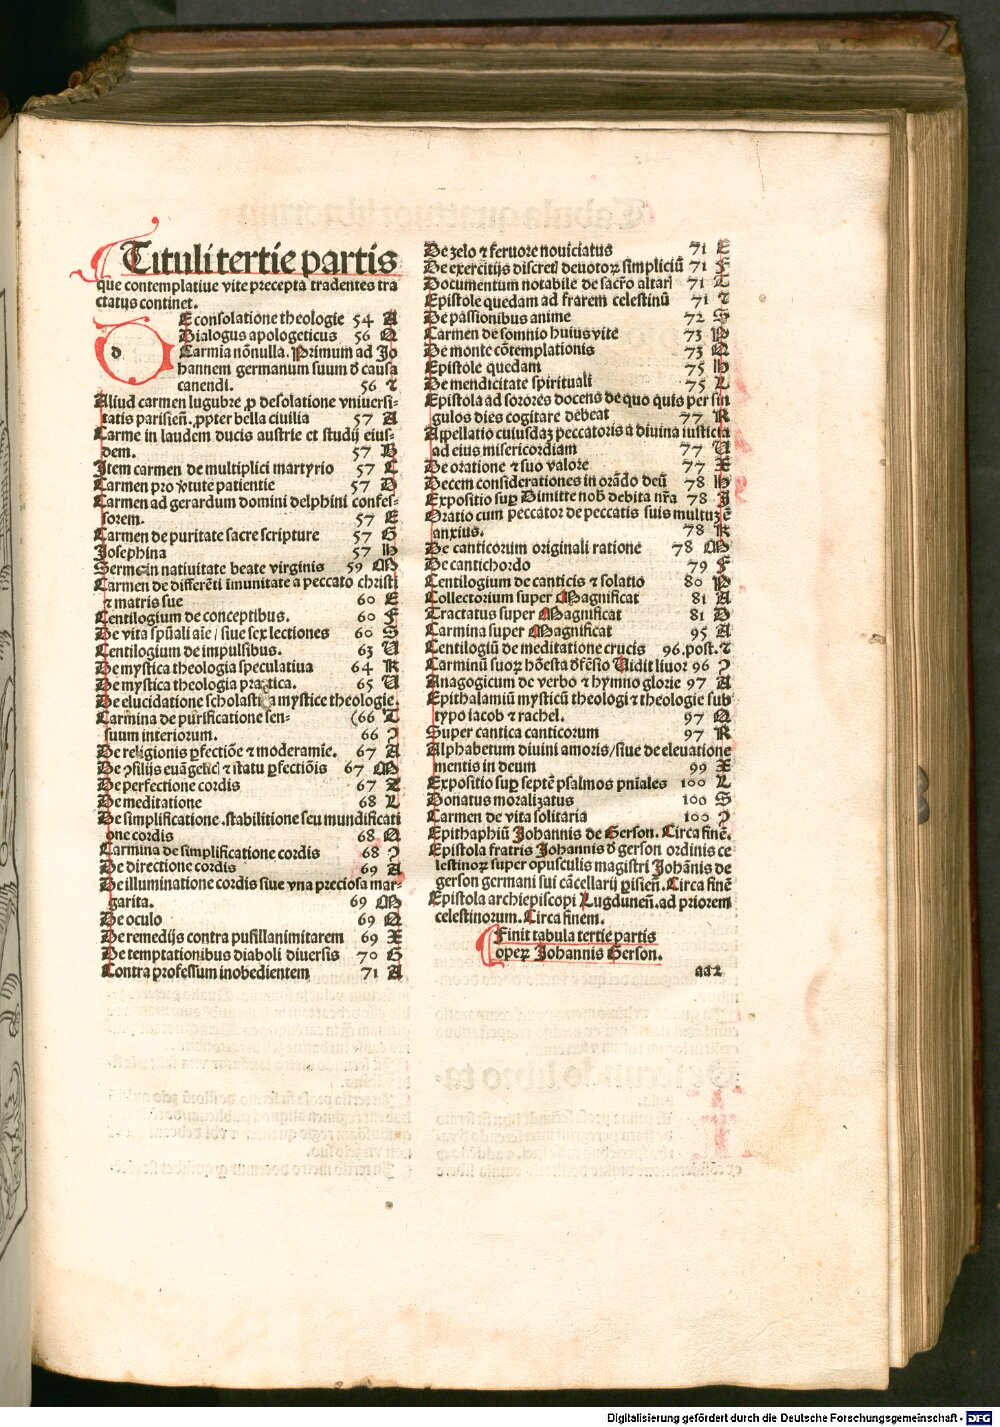 Tituli tertie partis
que contemplatiue vite precepta tradentes tra
ctatus continet.
d
E consolatione theologie 54 A
Dialogus apologeticus 56 N
Carmia nõnulla. Primum ad Jo
hannem germanum suum d̄ causa
canendi. 56 ⁊
Aliud carmen lugubre ꝓ desolatione vniuersi-
tatis parisieñ. ꝓpter bella ciuilia 57 A
Carmē in laudem ducis austrie et studij eius-
dem. 57 B
Item carmen de multiplici martyrio 57 C
Carmen pro v̓tute patientie 57 D
Carmen ad gerardum domini delphini confes-
sorem. 57 E
Carmen de puritate sacre scripture 57 G
Josephina 57 H
Sermo in natiuitate beate virginis 59 M
Carmen de differẽti imunitate a peccato christi
⁊ matris sue 60 E
Centilogium de conceptibus. 60 F
De vita spũali aĩe / siue sex lectiones 60 S
Centilogium de impulsibus. 63 U
De mystica theologia speculatiua 64 K
De mystica theologia practica. 65 U
De elucidatione scholastica mystice theologie.
Carmina de purificatione sen- (66 T
suum interiorum. 66 ꝛ
De religionis ꝑfectiõe ⁊ moderamie. 67 A
De ꝯsilijs euãgelicꝭ ⁊ statu ꝑfectiõis 67 M
De perfectione cordis 67 Z
De meditatione 68 L
De simplificatione .stabilitione seu mundificati
one cordis 68 N
Carmina de simplificatione cordis 68 ꝛ
De directione cordis 69 A
De illuminatione cordis siue vna preciosa mar-
garita. 69 M
De oculo 69 N
De remedijs contra pusillanimitatem 69 X
De temptationibus diaboli diuersis 70 G
Contra professum inobedientem 71 A
De zelo ⁊ feruore nouiciatus 71 E
De exercitijs discretꝭ deuotoꝝ simpliciũ 71 F
Documentum notabile de sacr̃o altarꝭ 71 T
Epistole quedam ad fratrem celestinũ 71 ⁊
De passionibus anime 72 S
Carmen de somnio huius vite 73 P
De monte cõtemplationis 73 N
Epistole quedam 75 H
De mendicitate spirituali 75 L
Epistola ad sorores docens de quo quis per sin
gulos dies cogitare debeat 77 R
Appellatio cuiusdaꝫ peccatoris a diuina iusticia
ad eius misericordiam 77 U
De oratione ⁊ suo valore 77 X
Decem considerationes in orãdo deũ 78 H
Expositio suꝑ Dimitte nob̃ debita nr̃a 78 J
Oratio cum peccator de peccatis suis multuꝫ ẽ
anxius. 78 K
De canticorum originali ratione 78 M
De canticho:do 79 F
Centilogium de canticis ⁊ solatio 80 P
Collectorium super Magnificat 81 A
Tractatus super Magnificat 81 D
Carmina super Magnificat 95 A
Centilogiũ de meditatione crucis 96.post.⁊
Carminũ suoꝝ hõesta d̓fẽsio Uidit liuor 96 ꝛ
Anagogicum de verbo ⁊ hymno glorie 97 A
Epithalamiũ mysticũ theologi ⁊ theologie sub
typo iacob ⁊ rachel. 97 N
Super cantica canticorum 97 R
Alphabetum diuini amoris/siue de eleuatione
mentis in deum 99 X
Expositio suꝑ septẽ psalmos pniales 100 L
Donatus moralizatus 100 S
Carmen de vita solitaria 100 ꝛ
Epithaphiũ Johannis de Gerson. Circa finẽ.
Epistola fratris Johannis d̓ gerson ordinis ce
lestinoꝝ super opusculis magistri Johãnis de
gerson germani sui cãcellarij ꝑisieñ. Circa finẽ
Epistola archiepiscopi Lugduneñ. ad priorem
celestinorum. Circa finem.
Finit tabula tertie partis
operꝝ Johannis Gerson.
aa2
Digitalisierung gefördert durch die Deutsche Forschungsgemeinschaft - DFG